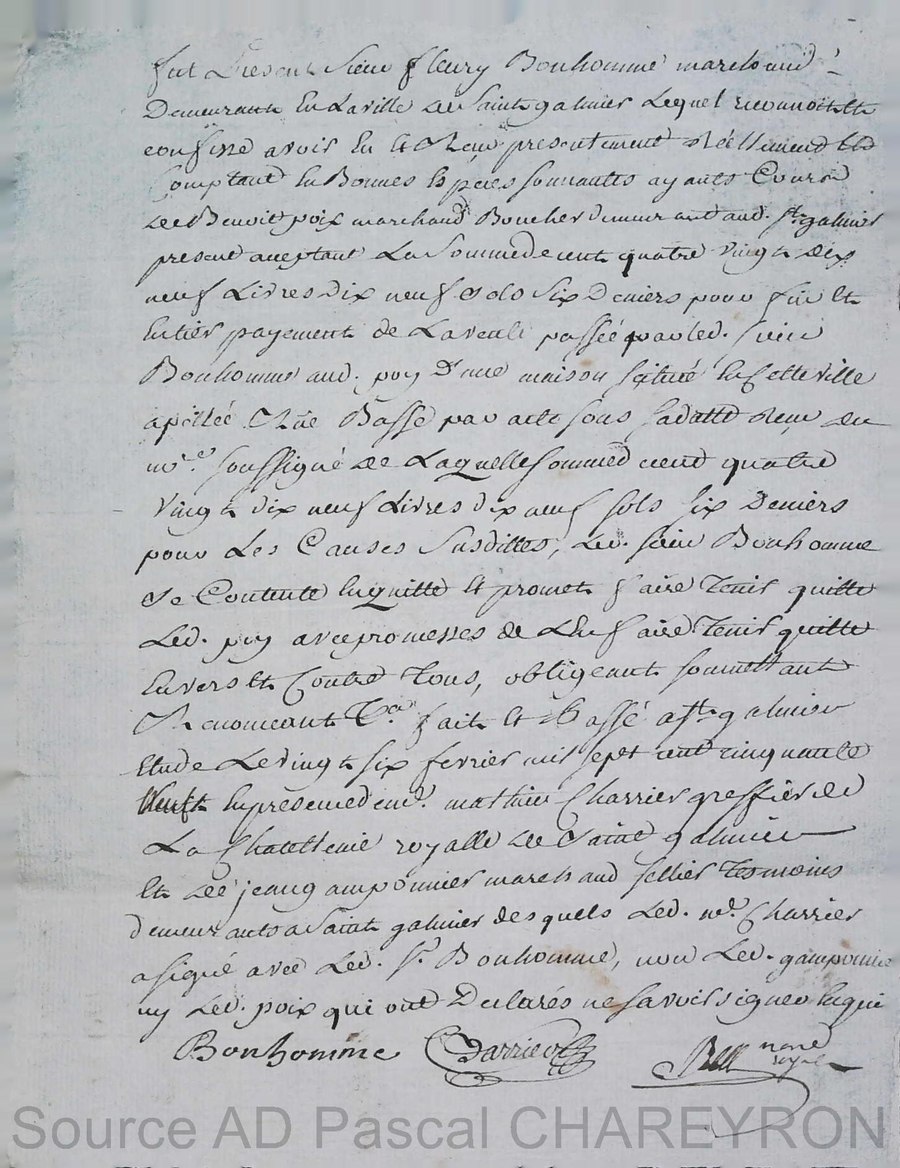 fut present sieur fleury Bonhomme marchand
Demeurant En Laville de Saint galmier Lequel reconnoit et
confesse avoir Eu et Reçu presentement Réellement et
Comptant En Bonnes Especes sonnantes ayants Cours
de Benoit poix marchand Boucher demeurant aud. St galmier
present aceptant La Somme de cent quatre vingt dix
neuf Livres dix neuf sols six Deniers pour fin et
Entier payement de La vente passée par led. sieur
Bonhomme aud. poix D'une maison scitué En Cette ville
apellée Rüe Basse par acte sous sa datte Reçu du
soussigné de Laquelle somme de cent quatre
vingt dix neuf Livres dix neuf sols six Deniers
pour Les Causes Susdittes, Led. sieur Bonhomme
se Contente Enquitte Et promet faire Tenir quitte
Led. poix avec promesses de L'En faire Tenir quitte
Envers et Contre Tous, obligeant soumettant
Renonceant &ca fait et Passé a St galmier
Etude Le vingt six fevrier mil sept cent cinquante
En presence de mathieu Charrier greffier de
La Chatellenie royalle de Saint galmier
et de jean gamponnier marchand sellier Tesmoins
demeurants a Saint galmier desquels Led. Charrier
a signé avec Led. Sr. Bonhomme, non Led. gamponnier
ny Led. poix qui ont Declarés ne savoir signer Enquis
Bonhomme Charrier
Source AD Pascal CHAREYRON